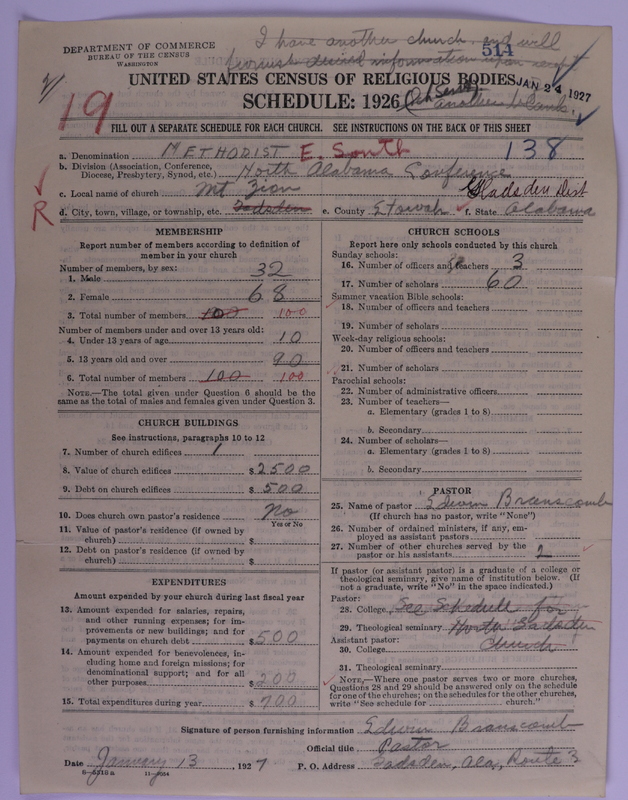 I have another church and will
DEPARTMENT OF COMMERCE
BUREAU OF THE CENSUS
WASHINGTON
514
furnish desired information upon
UNITED STATES CENSUS OF RELIGIOUS BODIES
JAN 24 1927
SCHEDULE: 1926
another blank.
19
FILL OUT A SEPARATE SCHEDULE FOR EACH CHURCH. SEE INSTRUCTIONS ON THE BACK OF THIS SHEET
a. Denomination METHODIST E. South 138
b. Division (Association, Conference, Diocese, Presbytery, Synod, etc.) North Alabama Conference
c. Local name of church Mt Zion Gadsden Dist
R
d. City, town, village, or township, etc. Gadsden e. County Etowah f. State Alabama
MEMBERSHIP
Report number of members according to definition of member in your church
Number of members, by sex:
1. Male 32
2. Female 68
3. Total number of members 100 100
Number of members under and over 13 years old:
4. Under 13 years of age 10
5. 13 years old and over 90
6. Total number of members 100 100
NOTE.—The total given under Question 6 should be the same as the total of males and females given under Question 3.
CHURCH BUILDINGS
See instructions, paragraphs 10 to 12
7. Number of church edifices 1
8. Value of church edifices $2500
9. Debt on church edifices $500
10. Does church own pastor's residence No
Yes or No
11. Value of pastor's residence (if owned by church) $
12. Debt on pastor's residence (if owned by church) $
EXPENDITURES
Amount expended by your church during last fiscal year
13. Amount expended for salaries, repairs, and other running expenses; for improvements or new buildings; and for payments on church debt $500
14. Amount expended for benevolences, including home and foreign missions; for denominational support; and for all other purposes $200
15. Total expenditures during year $700
CHURCH SCHOOLS
Report here only schools conducted by this church
Sunday schools:
16. Number of officers and teachers 3
17. Number of scholars 60
Summer vacation Bible schools:
18. Number of officers and teachers
19. Number of scholars
Week-day religious schools:
20. Number of officers and teachers
21. Number of scholars
Parochial schools:
22. Number of administrative officers
23. Number of teachers—
a. Elementary (grades 1 to 8)
b. Secondary
24. Number of scholars—
a. Elementary (grades 1 to 8)
b. Secondary
PASTOR
25. Name of pastor Edwin Branscomb
(If church has no pastor, write "None")
26. Number of ordained ministers, if any, employed as assistant pastors
27. Number of other churches served by the pastor or his assistants 2
If pastor (or assistant pastor) is a graduate of a college or theological seminary, give name of institution below. (If not a graduate, write "No" in the space indicated.)
Pastor:
28. College See Schedule for
29. Theological seminary North Gadsden
Assistant pastor:
30. College Church
31. Theological seminary
NOTE.—Where one pastor serves two or more churches, Questions 28 and 29 should be answered only on the schedule for one of the churches; on the schedules for the other churches, write "See schedule for church."
Signature of person furnishing information Edwin Branscomb
Official title Pastor
Date January 13, 1927 P. O. Address Gadsden, Ala, Route 3
8—5310a 11—9004